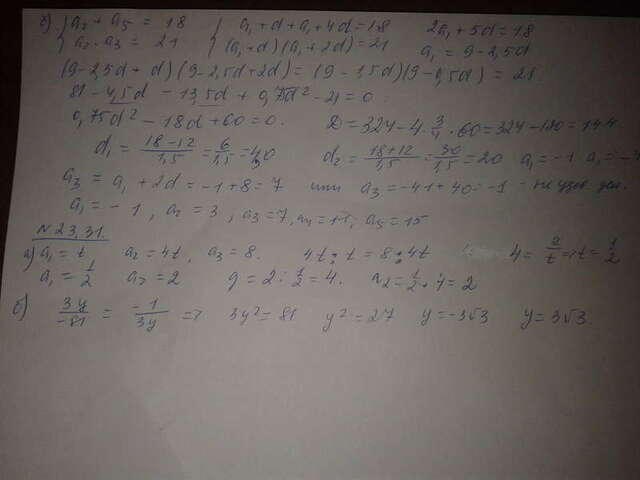 б) { a₂ + a₅ = 18 { a₁ + d + a₁ + 4d = 18 2a₁ + 5d = 18
a₂ · a₃ = 21 (a₁ + d)(a₁ + 2d) = 21 a₁ = 9 - 2,5d
(9 - 2,5d + d)(9 - 2,5d + 2d) = (9 - 1,5d)(9 - 0,5d) = 21
81 - 4,5d - 13,5d + 0,75d² - 21 = 0
0,75d² - 18d + 60 = 0. D = 324 - 4 · 3/4 · 60 = 324 - 180 = 144
d₁ = (18 - 12)/1,5 = 6/1,5 = d₂ = (18 + 12)/1,5 = 30/1,5 = 20 a₁ = -1
a₃ = a₁ + 2d = -1 + 8 = 7 или a₃ = -41 + 40 = -1 -
a₁ = -1, a₂ = 3, a₃ = 7, a₄ = 11, a₅ = 15
N 23.31.
а) a₁ = t a₂ = 4t, a₃ = 8. 4t : t = 8 : 4t 4 = t = 1/2
a₁ = 1/2 a₂ = 2 q = 2 : 1/2 = 4.
б) 3y/-81 = -1/3y => 3y² = 81 y² = 27 y = -3√3 y = 3√3.